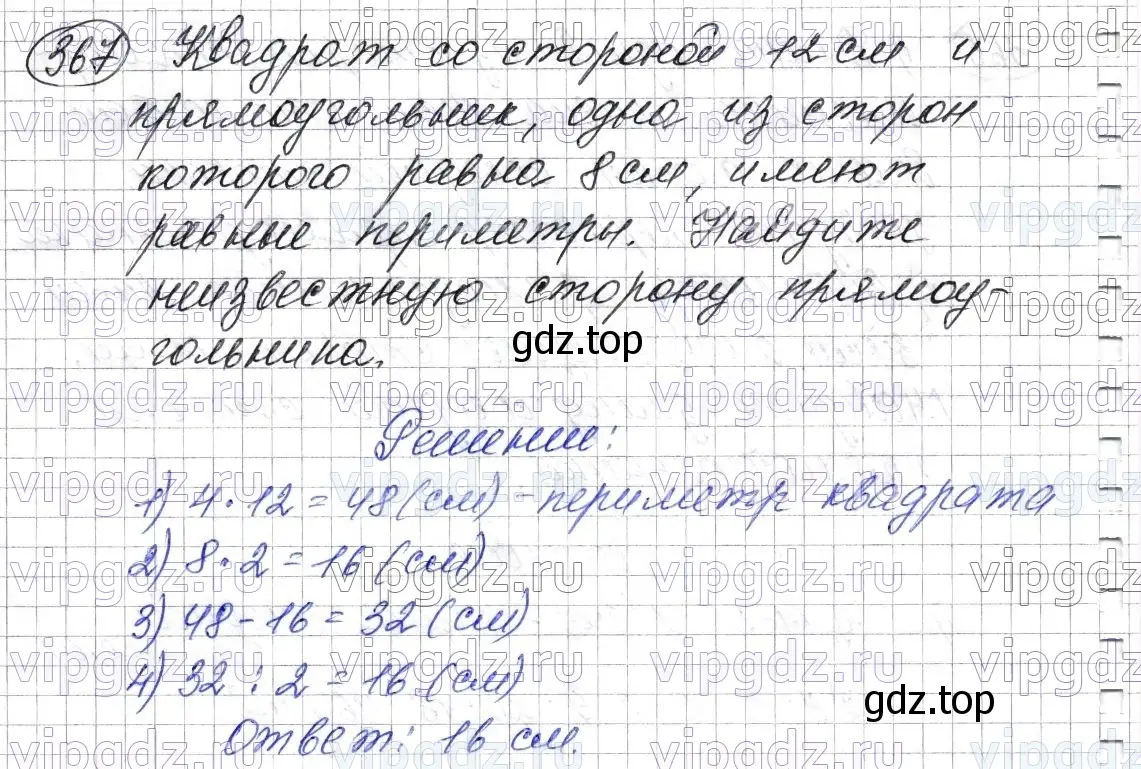 367 Квадрат со стороной 12 см и
прямоугольник, одна из сторон
которого равна 8 см, имеют
равные периметры. Найдите
неизвестную сторону прямоу-
гольника.
gdz.top
Решение:
1) 4 · 12 = 48 (см) - периметр квадрата
2) 8 · 2 = 16 (см)
3) 48 - 16 = 32 (см)
4) 32 : 2 = 16 (см)
gdz.top
Ответ: 16 см.
vipgdz.ru